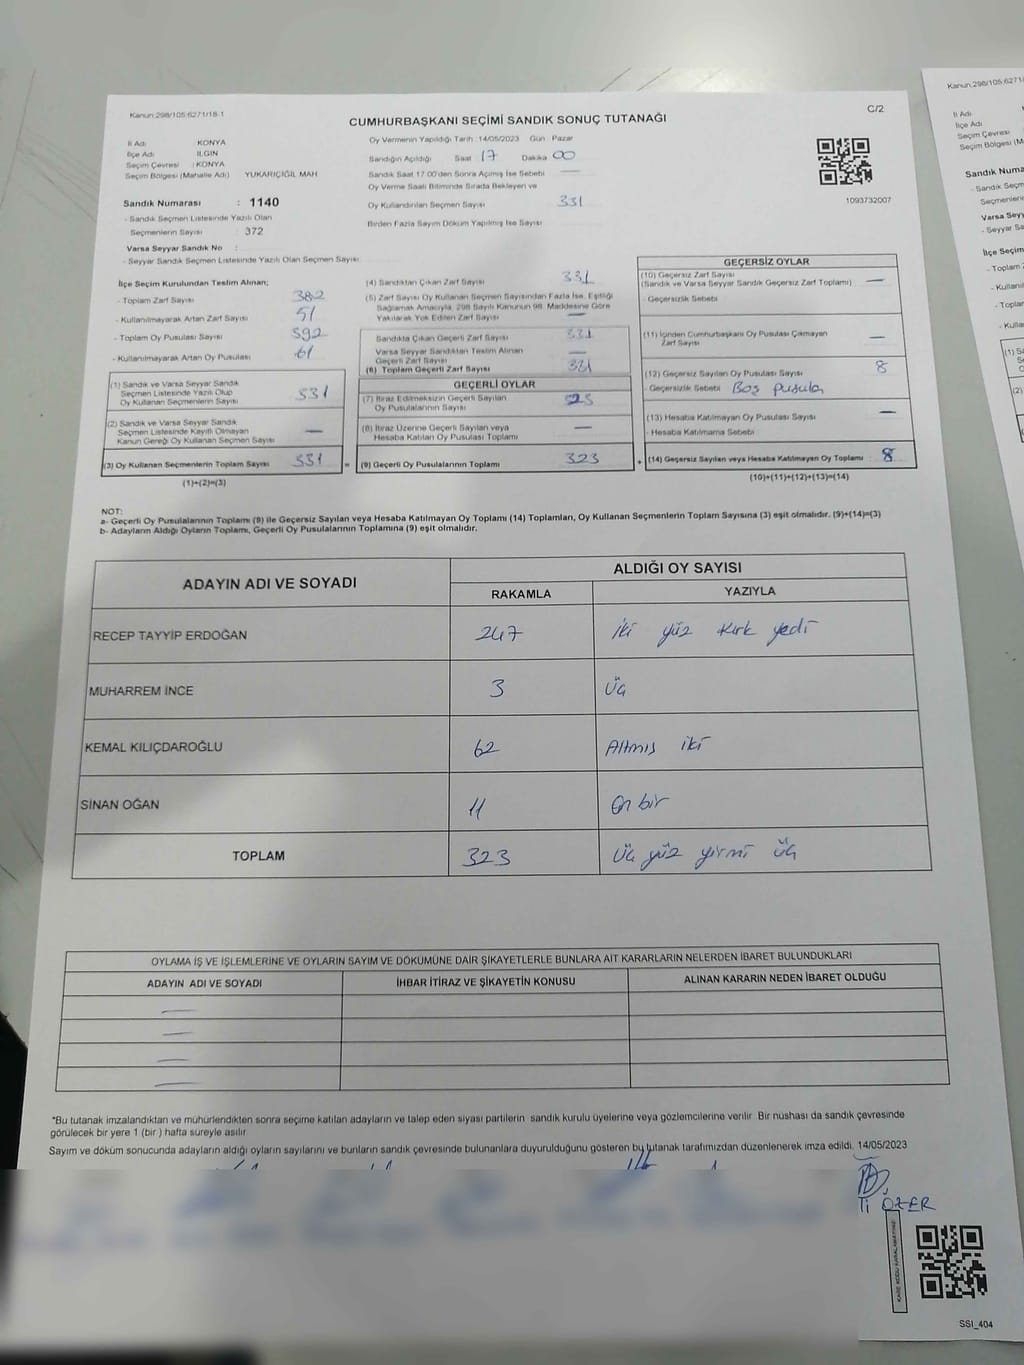 Kanun:298/105;6271/18-1
C/2
CUMHURBAŞKANI SEÇİMİ SANDIK SONUÇ TUTANAĞI
İl Adı KONYA
İlçe Adı ILGIN
Seçim Çevresi : KONYA
Seçim Bölgesi (Mahalle Adı) YUKARIÇİĞİL MAH
Sandık Numarası : 1140
- Sandık Seçmen Listesinde Yazılı Olan
Seçmenlerin Sayısı : 372
Varsa Seyyar Sandık No :
- Seyyar Sandık Seçmen Listesinde Yazılı Olan Seçmen Sayısı
Oy Vermenin Yapıldığı Tarih 14/05/2023 Gün : Pazar
Sandığın Açıldığı Saat 17 Dakika 00
Sandık Saat 17.00'den Sonra Açılmış İse Sebebi —
Oy Verme Saati Bitiminde Sırada Bekleyen ve
Oy Kullandırılan Seçmen Sayısı 331
Birden Fazla Sayım Döküm Yapılmış İse Sayısı
1093732007
İlçe Seçim Kurulundan Teslim Alınan;
- Toplam Zarf Sayısı 382
- Kullanılmayarak Artan Zarf Sayısı 51
- Toplam Oy Pusulası Sayısı 392
- Kullanılmayarak Artan Oy Pusulası 61
(1) Sandık ve Varsa Seyyar Sandık
Seçmen Listesinde Yazılı Olup
Oy Kullanan Seçmenlerin Sayısı 331
(2) Sandık ve Varsa Seyyar Sandık
Seçmen Listesinde Kayıtlı Olmayan
Kanun Gereği Oy Kullanan Seçmen Sayısı —
(3) Oy Kullanan Seçmenlerin Toplam Sayısı 331
(1)+(2)=(3)
(4) Sandıktan Çıkan Zarf Sayısı 331
(5) Zarf Sayısı Oy Kullanan Seçmen Sayısından Fazla İse, Eşitliği
Sağlamak Amacıyla, 298 Sayılı Kanunun 98. Maddesine Göre
Yakılarak Yok Edilen Zarf Sayısı —
Sandıkta Çıkan Geçerli Zarf Sayısı 331
Varsa Seyyar Sandıktan Teslim Alınan
Geçerli Zarf Sayısı —
(6) Toplam Geçerli Zarf Sayısı 331
GEÇERLİ OYLAR
(7) İtiraz Edilmeksizin Geçerli Sayılan
Oy Pusulalarının Sayısı
(8) İtiraz Üzerine Geçerli Sayılan veya
Hesaba Katılan Oy Pusulası Toplamı —
= (9) Geçerli Oy Pusulalarının Toplamı 323
GEÇERSİZ OYLAR
(10) Geçersiz Zarf Sayısı
(Sandık ve Varsa Seyyar Sandık Geçersiz Zarf Toplamı) —
- Geçersizlik Sebebi
(11) İçinden Cumhurbaşkanı Oy Pusulası Çıkmayan
Zarf Sayısı —
(12) Geçersiz Sayılan Oy Pusulası Sayısı 8
- Geçersizlik Sebebi Boş pusula
(13) Hesaba Katılmayan Oy Pusulası Sayısı —
- Hesaba Katılmama Sebebi
+ (14) Geçersiz Sayılan veya Hesaba Katılmayan Oy Toplamı 8
(10)+(11)+(12)+(13)=(14)
NOT:
a- Geçerli Oy Pusulalarının Toplamı (9) ile Geçersiz Sayılan veya Hesaba Katılmayan Oy Toplamı (14) Toplamları, Oy Kullanan Seçmenlerin Toplam Sayısına (3) eşit olmalıdır. (9)+(14)=(3)
b- Adayların Aldığı Oyların Toplamı, Geçerli Oy Pusulalarının Toplamına (9) eşit olmalıdır.
ADAYIN ADI VE SOYADI ALDIĞI OY SAYISI
RAKAMLA YAZIYLA
RECEP TAYYİP ERDOĞAN 247 iki yüz kırk yedi
MUHARREM İNCE 3 üç
KEMAL KILIÇDAROĞLU 62 Altmış iki
SİNAN OĞAN 11 On bir
TOPLAM 323 üç yüz yirmi üç
OYLAMA İŞ VE İŞLEMLERİNE VE OYLARIN SAYIM VE DÖKÜMÜNE DAİR ŞİKAYETLERLE BUNLARA AİT KARARLARIN NELERDEN İBARET BULUNDUKLARI
ADAYIN ADI VE SOYADI İHBAR İTİRAZ VE ŞİKAYETİN KONUSU ALINAN KARARIN NEDEN İBARET OLDUĞU
—
—
—
—
*Bu tutanak imzalandıktan ve mühürlendikten sonra seçime katılan adayların ve talep eden siyasi partilerin sandık kurulu üyelerine veya gözlemcilerine verilir Bir nüshası da sandık çevresinde
görülecek bir yere 1 (bir ) hafta süreyle asılır
Sayım ve döküm sonucunda adayların aldığı oyların sayılarını ve bunların sandık çevresinde bulunanlara duyurulduğunu gösteren bu tutanak tarafımızdan düzenlenerek imza edildi. 14/05/2023
ÖZER
KARE KODU KARALAMAYINIZ
SSI_404
Kanun:298/105;6271/
İl Adı
İlçe Adı
Seçim Çevresi
Seçim Bölgesi (M
Sandık Numa
- Sandık Seçm
Seçmenlerin
Varsa Seyy
- Seyyar Sa
İlçe Seçim
- Toplam
- Kullanı
- Toplam
- Kulla